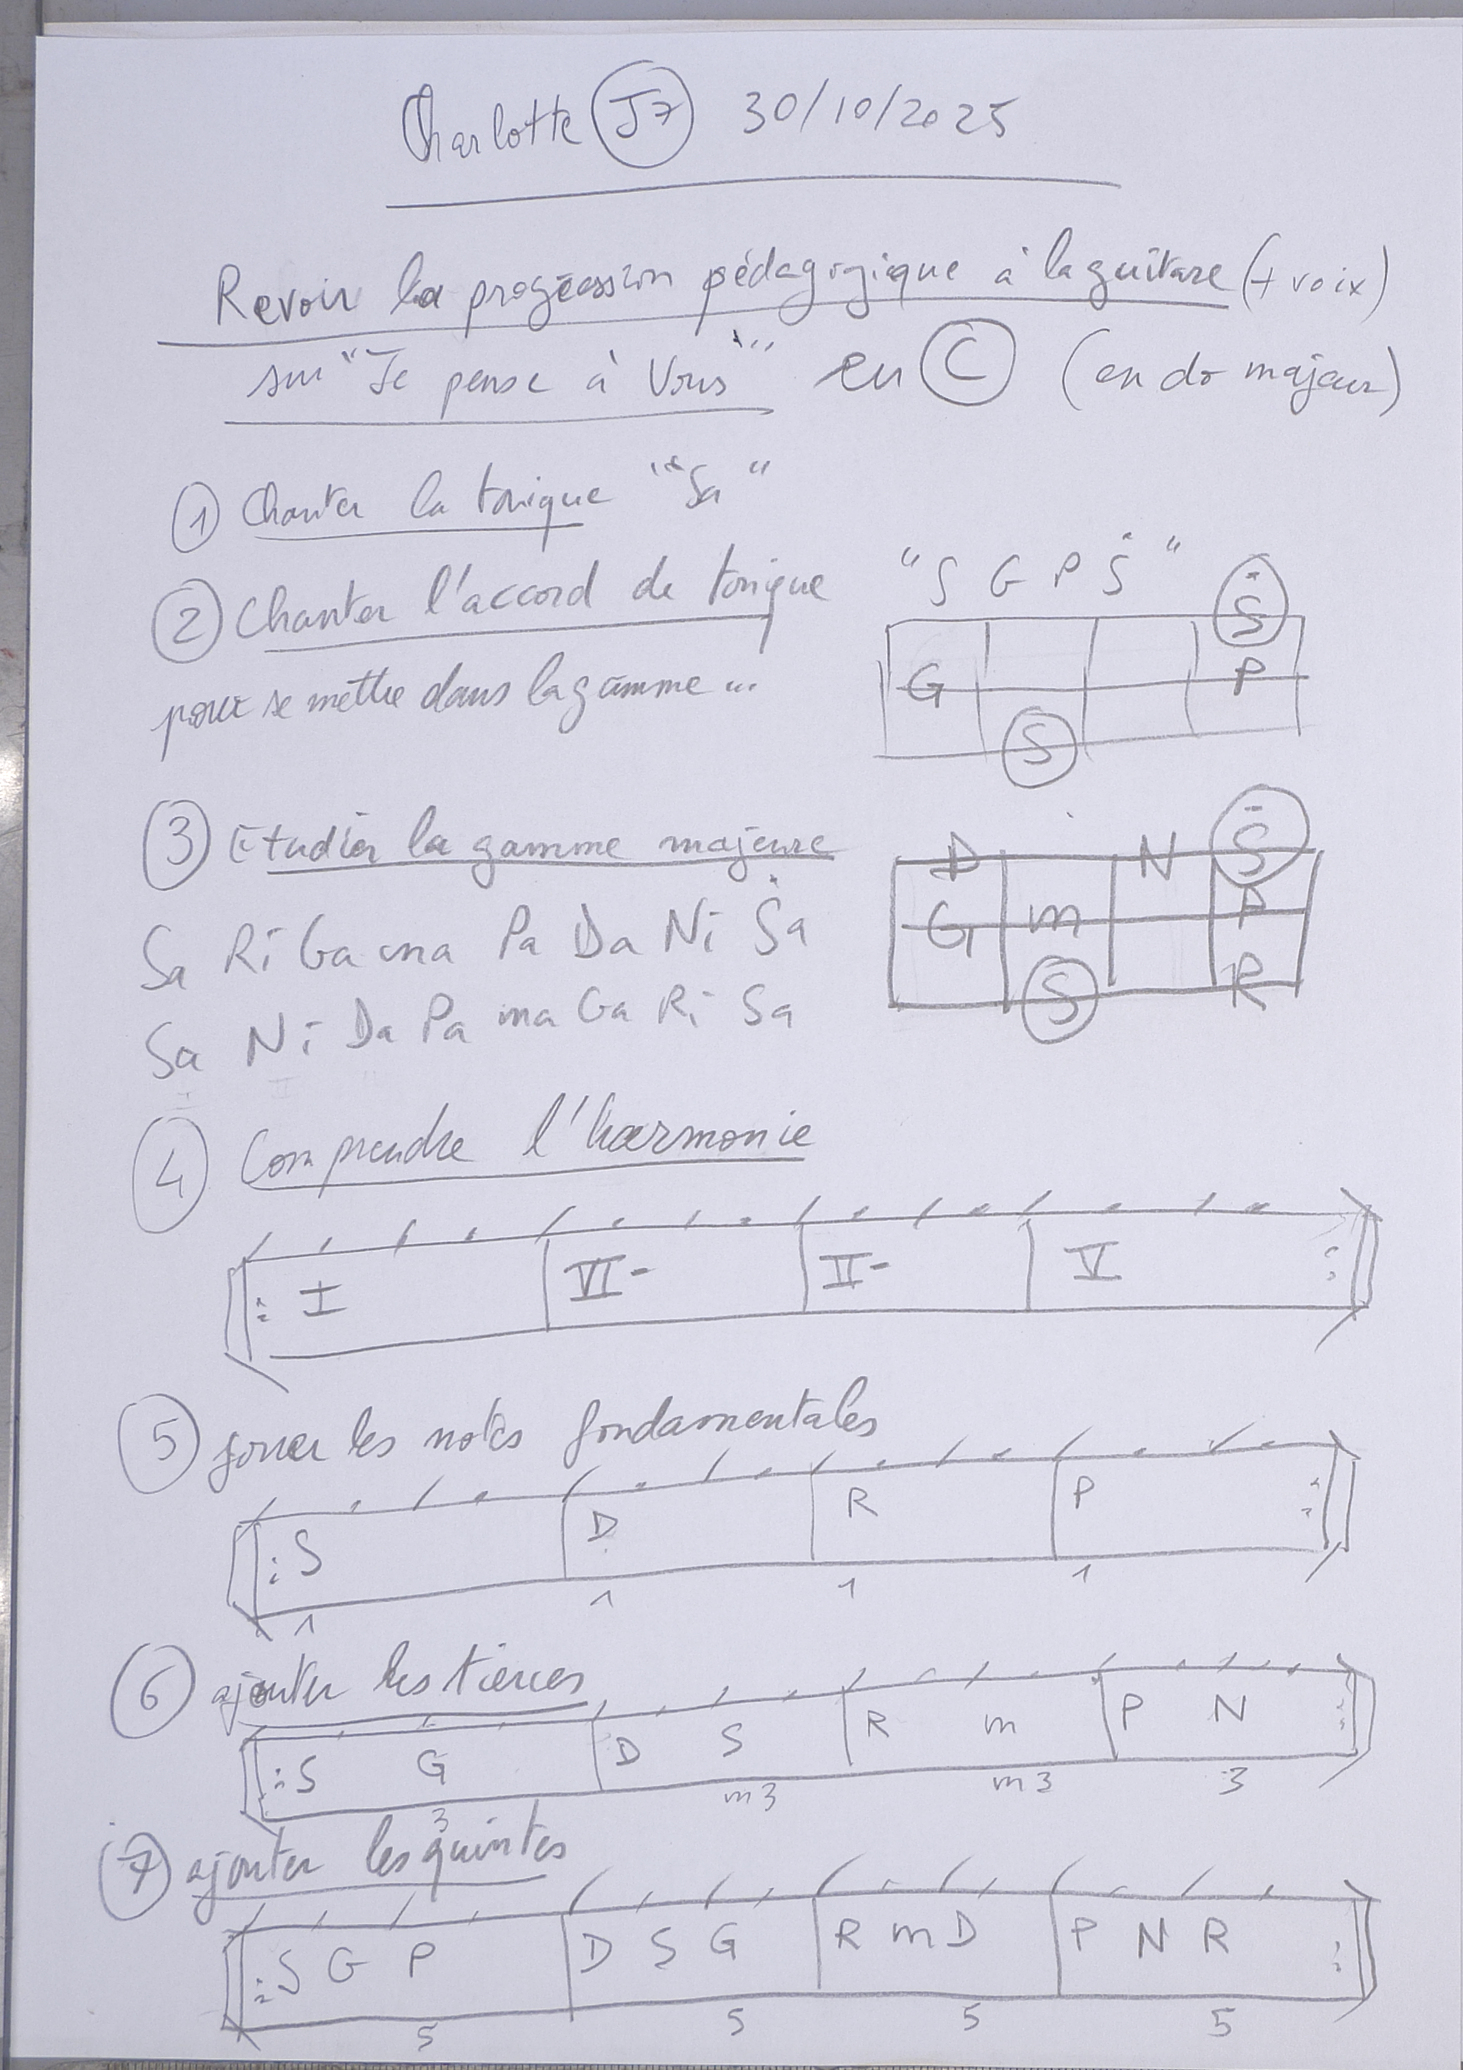 Charlotte J7 30/10/2025
Revoir la progression pédagogique à la guitare (+ voix)
sur "Je pense à Vous" en C (en do majeur)
1 Chanter la tonique "Sa"
2 Chanter l'accord de tonique "S G P Ṡ"
pour se mettre dans la gamme...
Ṡ
G P
S
3 Etudier la gamme majeure
D N Ṡ
G m P
S R
Sa Ri Ga ma Pa Da Ni Ṡa
Sa Ni Da Pa ma Ga Ri Sa
4 Comprendre l'harmonie
I VI- II- V
5 jouer les notes fondamentales
S D R P
1 1 1 1
6 ajouter les tierces
S G D S R m P N
3 m3 m3 3
7 ajouter les quintes
S G P D S G R m D P N R
5 5 5 5